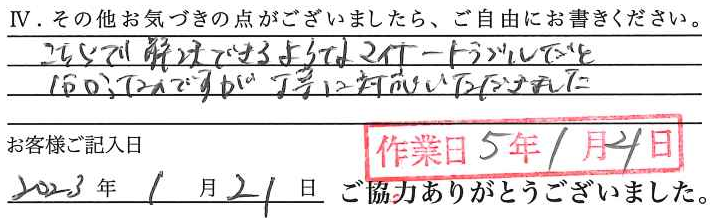 Ⅳ．その他お気づきの点がございましたら、ご自由にお書きください。
こちらで解決できるようなマイナートラブルだと
なのですが 丁寧に対応いただけました
お客様ご記入日
作業日 5年1月21日
2023年1月21日 ご協力ありがとうございました。